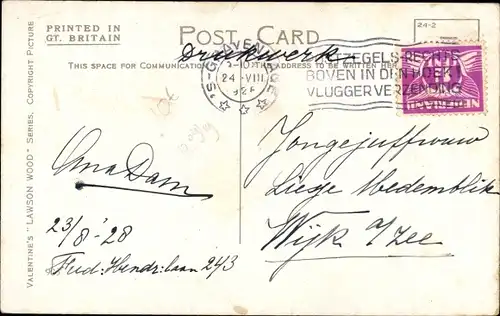 PRINTED IN
GT. BRITAIN
POST CARD
24-2
Drukwerk
THIS SPACE FOR COMMUNICATION
THE ADDRESS TO BE WRITTEN HERE
'S-GRAVENHAGE
24 VIII
POSTZEGELS RECHTS
BOVEN IN DEN HOEK!
VLUGGER VERZENDING
NEDERLAND
VALENTINE'S "LAWSON WOOD" SERIES. COPYRIGHT PICTURE
Jongejuffrouw
Liesje Medemblik
Wijk a/Zee
Ona Dam
23/8-'28
Fred. Hendr. laan 243